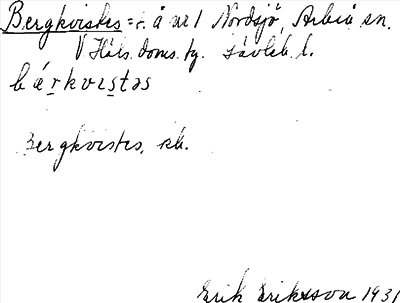 Bergkvistes = r. å nr 1 Nordsjö, Arbrå sn.
V Häls. doms. fg. Gävleb. l.
bárkvɩstəs
Bergkvistes, kb.
Erik Eriksson 1931